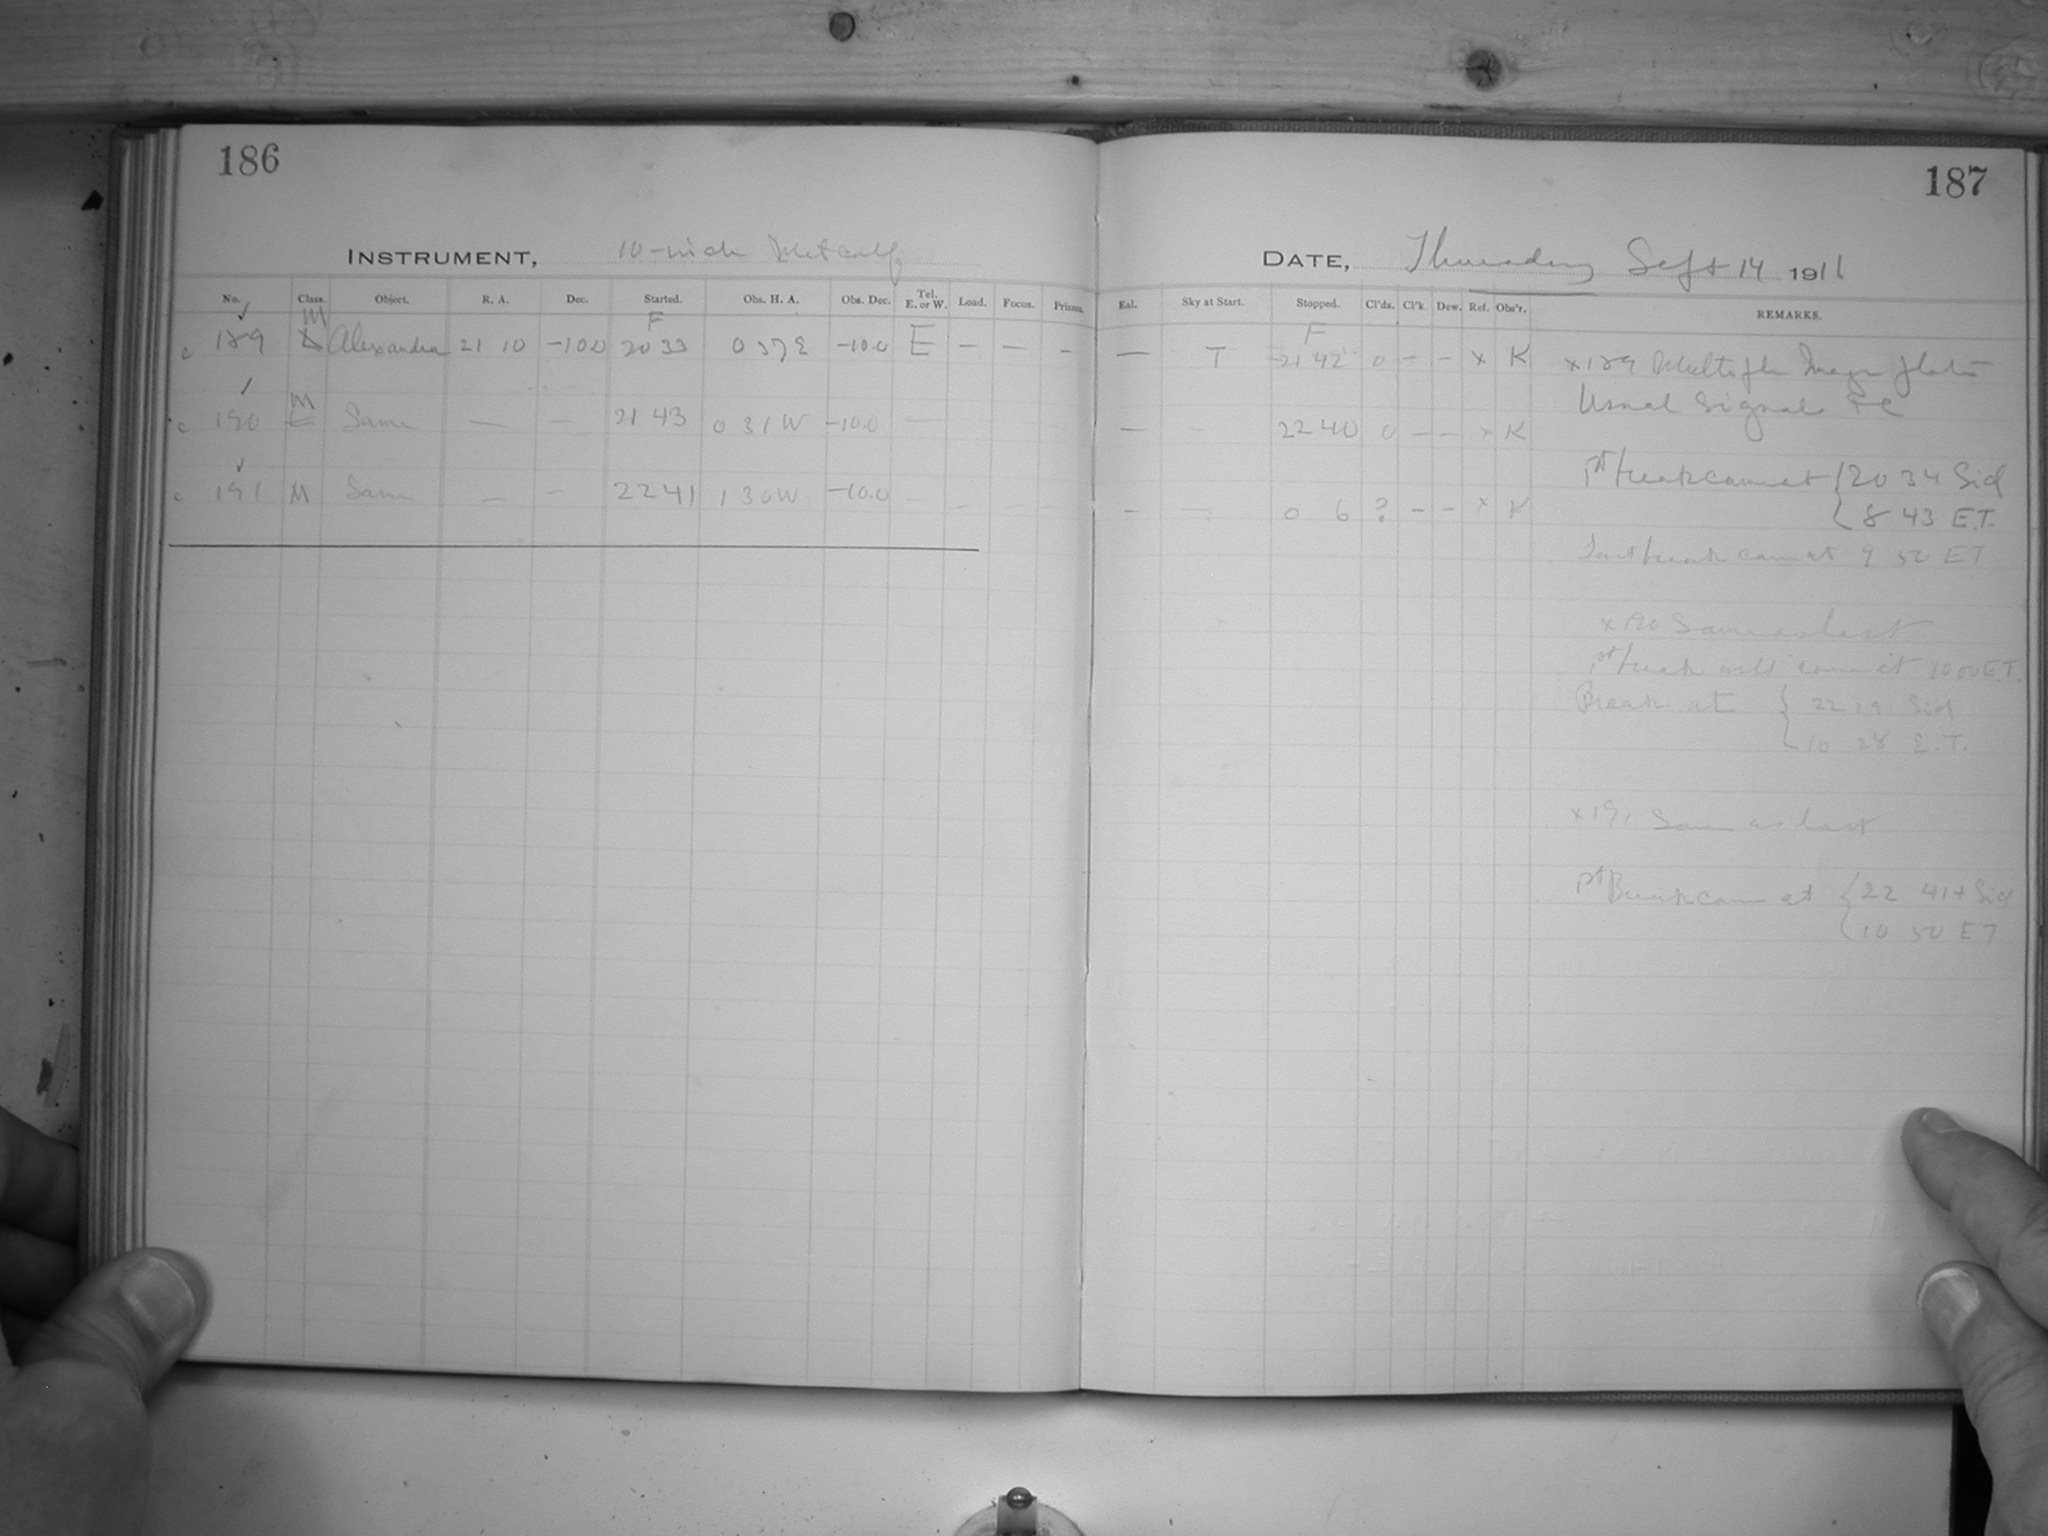 186
187
INSTRUMENT, 10-inch Metcalf
DATE, Thursday Sept 14 1911
No. Class. Object. R. A. Dec. Started. Obs. H. A. Obs. Dec. Tel. E. or W. Load. Focus. Prisms.
Eal. Sky at Start. Stopped. Cl'ds. Cl'k. Dew. Ref. Obs'r. REMARKS.
M F
c 189 Alexandra 21 10 -10.0 20 33 0 37 E -10.0 E — — —
F
— T 21 42 0 — — x K
M
c 190 Same — — 21 43 0 31 W -10.0 —
— 22 40 0 — — x K
c 191 M Same — — 22 41 1 30 W -10.0 —
— 0 6 ? — — x K
x 189 Multiple Image plate
Usual Signals
1st break came at { 20 34 Sid
{ 8 43 E.T.
Last break came at 9 52 ET
x 190 Same as last
1st break will come at 10 00 E.T.
Break at { 22 19 Sid
{ 10 28 E.T.
x 191 Same as last
1st Break came at { 22 41+ Sid
{ 10 50 ET